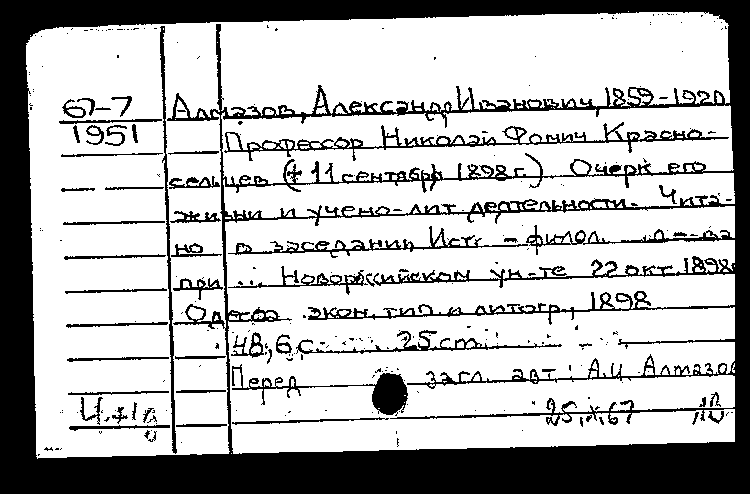 67-7 Алмазов, Александр Иванович, 1859-1920
1951 Профессор Николай Фомич Красно-
сельцев († 11 сентября 1898 г.) Очерк его
жизни и учено-лит. деятельности. Чита-
но в заседании Ист. - филол. о-ва
при Новороссийском ун-те 22 окт. 1898
Одесса экон. тип. и литогр., 1898
48, 6 с. 25 cm
Перед загл. авт.: А.И. Алмазов
25.X.67